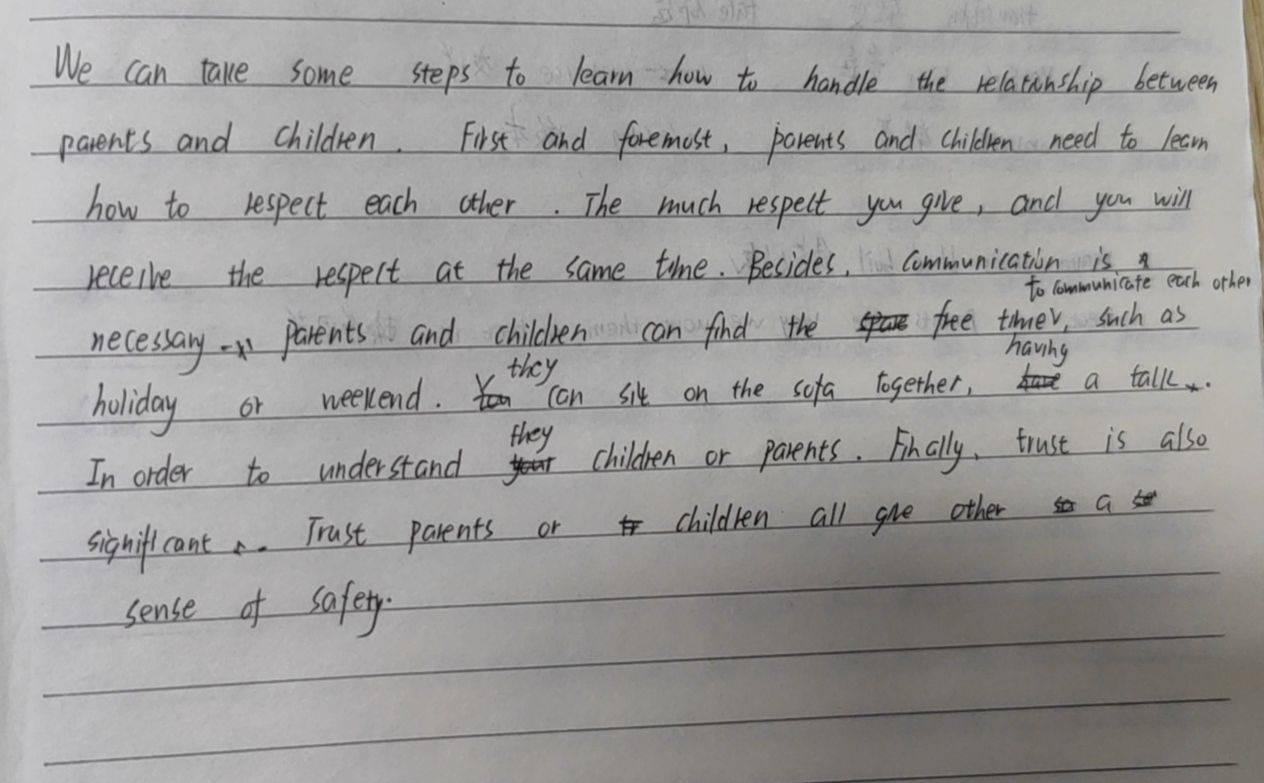 We can take some steps to learn how to handle the relationship between
parents and children. First and foremost, parents and children need to learn
how to respect each other. The much respect you give, and you will
receive the respect at the same time. Besides, communication is
to communicate each other
necessary. parents and children can find the spare free time, such as
having
they
holiday or weekend. You can sit on the sofa together, have a talk.
they
In order to understand your children or parents. Finally, trust is also
significant. Trust parents or children all give other a
sense of safety.